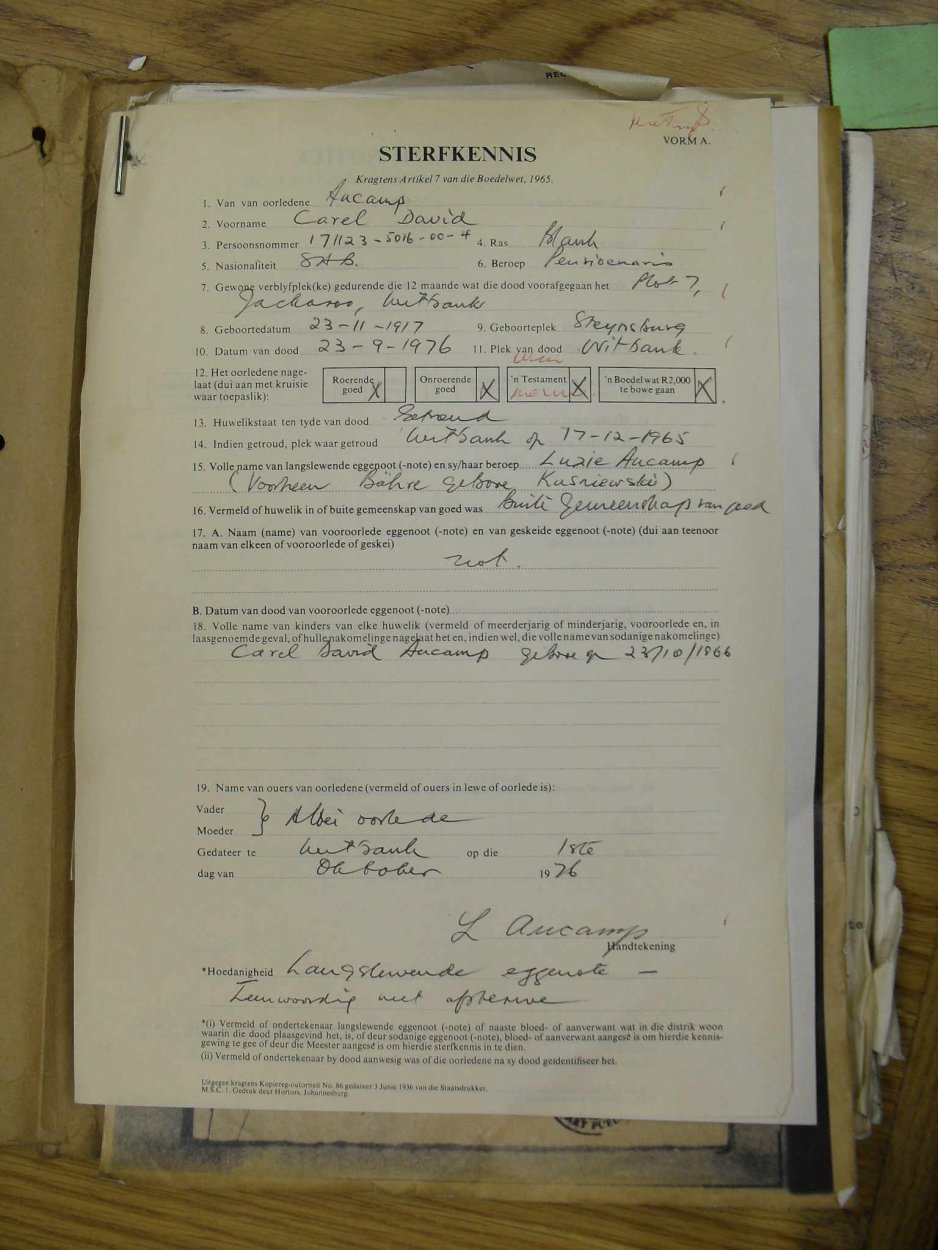 VORM A.
STERFKENNIS
Kragtens Artikel 7 van die Boedelwet, 1965.
1. Van van oorledene Aucamp
2. Voorname Carel David
3. Persoonsnommer 171123-5016-00-4 4. Ras Blank
5. Nasionaliteit S.A.B. 6. Beroep Pensioenaris
7. Gewone verblyfplek(ke) gedurende die 12 maande wat die dood voorafgegaan het Plot 7,
Jackaroo, Witbank
8. Geboortedatum 23-11-1917 9. Geboorteplek Steynsburg
10. Datum van dood 23-9-1976 11. Plek van dood Witbank.
12. Het oorledene nage-
laat (dui aan met kruisie
waar toepaslik):
Roerende
goed X
Onroerende
goed X
'n Testament X
'n Boedel wat R2,000
te bowe gaan X
13. Huwelikstaat ten tyde van dood Getroud
14. Indien getroud, plek waar getroud Witbank op 17-12-1965
15. Volle name van langslewende eggenoot (-note) en sy/haar beroep Luzie Aucamp
(Voorheen Bähre gebore Kusniewski)
16. Vermeld of huwelik in of buite gemeenskap van goed was Buite Gemeenskap van goed
17. A. Naam (name) van vooroorlede eggenoot (-note) en van geskeide eggenoot (-note) (dui aan teenoor
naam van elkeen of vooroorlede of geskei)
B. Datum van dood van vooroorlede eggenoot (-note)
18. Volle name van kinders van elke huwelik (vermeld of meerderjarig of minderjarig, vooroorlede en, in
laasgenoemde geval, of hulle nakomelinge nagelaat het en, indien wel, die volle name van sodanige nakomelinge)
Carel David Aucamp gebore op 23/10/1966
19. Name van ouers van oorledene (vermeld of ouers in lewe of oorlede is):
Vader
Moeder } Albei oorlede
Gedateer te Witbank op die 1ste
dag van Oktober 1976
L Aucamp
Handtekening
*Hoedanigheid Langslewende eggenote —
Teenwoordig met afsterwe
*(i) Vermeld of ondertekenaar langslewende eggenoot (-note) of naaste bloed- of aanverwant wat in die distrik woon
waarin die dood plaasgevind het, is, of deur sodanige eggenoot (-note), bloed- of aanverwant aangesê is om hierdie kennis-
gewing te gee of deur die Meester aangesê is om hierdie sterfkennis in te dien.
(ii) Vermeld of ondertekenaar by dood aanwesig was of die oorledene na sy dood geidentifiseer het.
Uitgegee kragtens Kopiereg-outoriteit No. 86 gedateer 3 Junie 1936 van die Staatsdrukker.
M.S.C. 1. Gedruk deur Hortors, Johannesburg.